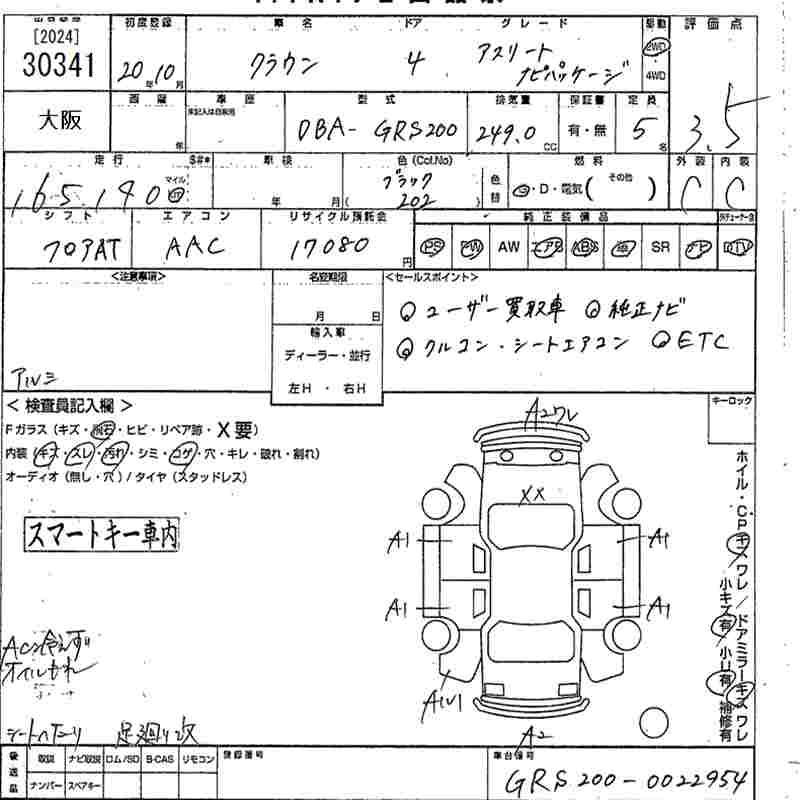 [2024]
30341
大阪
初度登録
20年10月
車名
クラウン
ドア
4
グレード
アスリート
ナビパッケージ
駆動
2WD
4WD
評価点
3.5
車歴
型式
DBA-GRS200
排気量
249.0 CC
保証書
有・無
定員
5名
走行
165,190
マイル
車検
年 月
色(Col.No)
ブラック
202
色替
燃料
G・D・電気( その他 )
外装
C
内装
C
シフト
フロアAT
エアコン
AAC
リサイクル預託金
17080円
純正装備品
PS PW AW エアB ABS 革 SR ナビ TV
<注意事項>
アルミ
名変期限
月 日
輸入車
ディーラー・並行
左H・右H
<セールスポイント>
ユーザー買取車 純正ナビ
クルコン・シートエアコン ETC
<検査員記入欄>
Fガラス(キズ・飛石・ヒビ・リペア跡・X要)
内装(キズ・スレ・汚れ・シミ・コゲ・穴・キレ・破れ・割れ)
オーディオ(無し・穴)/タイヤ(スタッドレス)
キーロック
スマートキー車内
A2ワレ
XX
A1 A1
A1 A1
A1U1
A2
ホイル・CPキズワレ/ドアミラーキズワレ
小キズ有 小U有 補修有
オイルもれ
シートヘたり 足廻り改
後送品
取説 ナビ取説 ロム/SD B-CAS リモコン
ナンバー スペアキー
登録番号
車台番号
GRS200-0022954